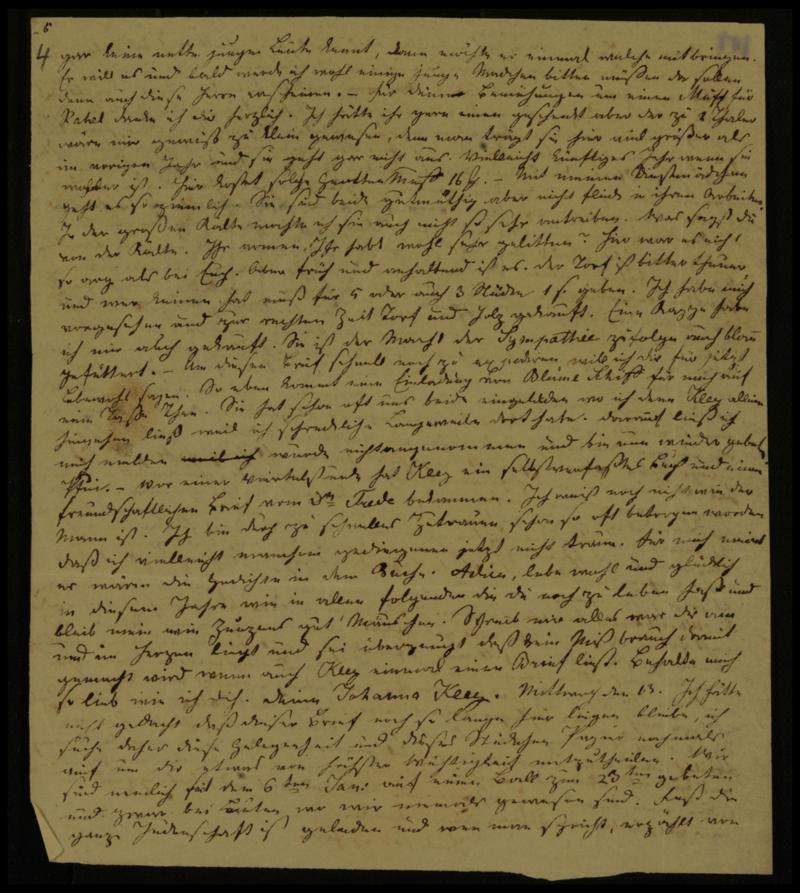 6
4 gar keine nette junge Leute kennt, dann möchte er einmal welche mitbringen.
Er will es und bald werde ich wohl einige junge Mädchen bitten müssen da sollen
denn auch diese Herrn erscheinen. – Für Deine Bemühungen um einen Muff für
danke ich dir herzlich. Ich hätte ihr gern einen geschenkt aber der zu 2 Thaler
wäre mir gewiß zu klein gewesen, denn man trägt sie hier viel größer als
im vorigen Jahr und sie geht gar nicht aus. Vielleicht künftiges Jahr wenn sie
ist. Hier kostet solch Muff 16 – Mit meinen Dienstmädchen
geht es so ziemlich. Sie sind beide gutmüthig aber nicht flink in ihren Arbeiten.
In der großen Kälte mochte ich sie auch nicht so sehr antreiben. Was sagst du
von der Kälte. Ihr armen, Ihr habt wohl sehr gelitten? Hier war es nicht
so arg als bei Euch. Aber früh und anhaltend ist es. Der Torf ist bitter theuer
und wer keinen hat muß für 5 oder auch 3 1 geben. Ich habe mich
vorgesehen und zur rechten Zeit Torf und Holz gekauft. Eine Kappe habe
ich mir auch gekauft. Sie ist der Macht der Sympathie zufolge auch blau
gefüttert. – Um diesen Brief schnell noch zu expediren will ich dir für jetzt
Lebewohl sagen. So eben kommt eine Einladung von Blüme Schiff für mich auf
eine Tasse Thee. Sie hat schon oft uns beide eingeladen wo ich denn Kley allein
hingehen ließ weil ich schreckliche Langeweile dort habe. Darauf ließ ich
mich melden wurde nicht angenommen und bin nun wieder gebeten
Pfui. – Vor einer Viertelstunde hat Kley ein selbstverfaßtes Buch und einen
freundschaftlichen Brief vom Dr Trede bekommen. Ich weiß noch nicht wie der
Mann ist. Ich bin durch zu schnelles Zutrauen schon so oft betrogen worden
daß ich vielleicht manchem gediegenen jetzt nicht traue. Für mich
es wären die Gedichte in dem Buche. Adieu, lebe wohl und glücklich
in diesem Jahre wie in allen folgenden die du noch zu leben hast und
bleib mein gut Mäuschen. Schreib mir alles was dir am
und im Herzen liegt und sei überzeugt daß kein Mißbrauch damit
gemacht wird wenn auch Kley einmal einen Brief ließt. Behalte mich
so lieb wie ich dich. Deine Johanna Kley. Mittwoch den 13. Ich hätte
nicht gedacht daß dieser Brief noch so lange hier liegen bliebe, ich
suche daher diese Gelegenheit und dieses Stückchen Papier nochmals
auf um dir etwas von höchster Wichtigkeit mitzutheilen. Wir
sind nemlich seit dem 6ten Jan: auf einen Ball zum 23ten gebeten
und zwar bei Leuten wo wir niemals gewesen sind. Fast die
ganze Judenschaft ist geladen und wen man spricht, erzählt von